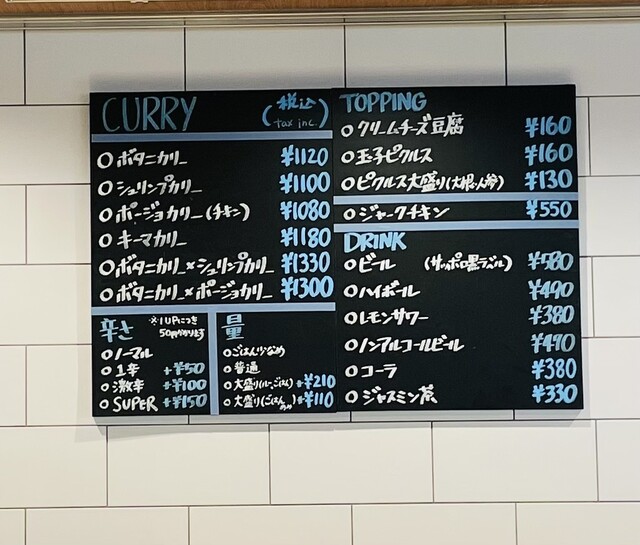 CURRY (税込 tax inc.)
○ボタニカリー ¥1120
○シュリンプカリー ¥1100
○ポージョカリー(チキン) ¥1080
○キーマカリー ¥1180
○ボタニカリー×シュリンプカリー ¥1330
○ボタニカリー×ポージョカリー ¥1300
辛さ ※1UPにつき
50円かかります
○ノーマル
○1辛 +¥50
○激辛 +¥100
○SUPER +¥150
量
○ごはん少なめ
○普通
○大盛り(ルー、ごはん) +¥210
○大盛り(ごはんのみ) +¥110
TOPPING
○クリームチーズ豆腐 ¥160
○玉子ピクルス ¥160
○ピクルス大盛り(大根、人参) ¥130
○ジャークチキン ¥550
DRINK
○ビール (サッポロ黒ラベル) ¥580
○ハイボール ¥490
○レモンサワー ¥380
○ノンアルコールビール ¥490
○コーラ ¥380
○ジャスミン茶 ¥330